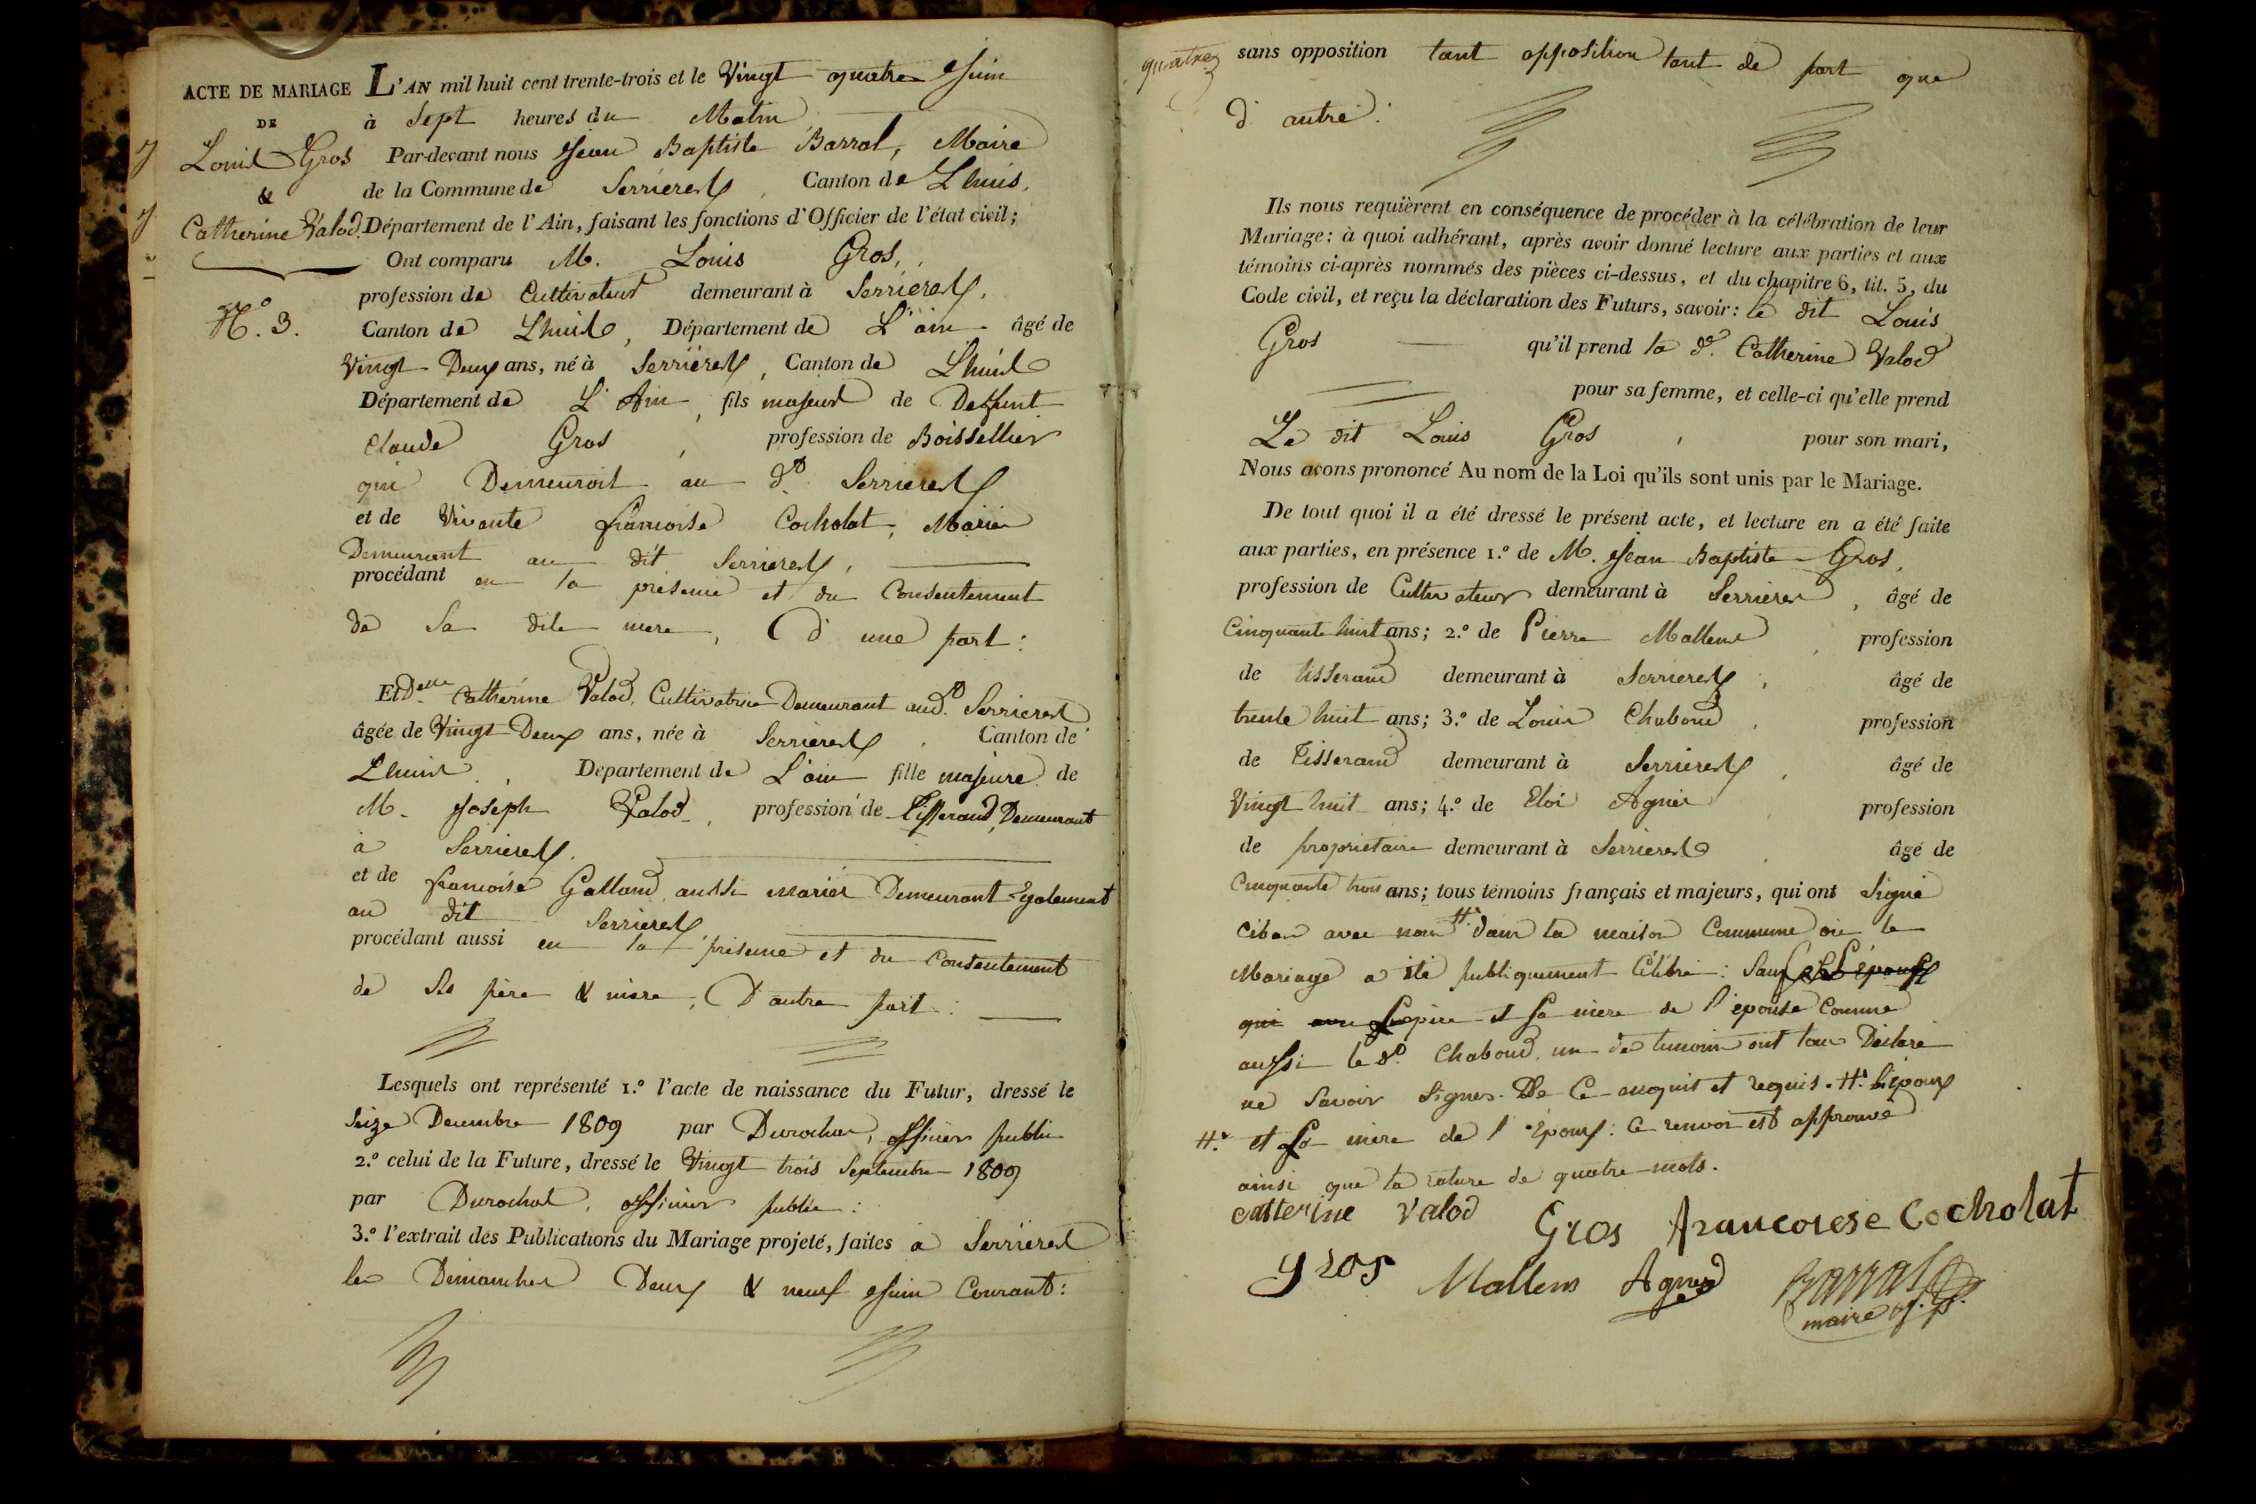 ACTE DE MARIAGE
DE
Louis Gros
&
Catherine Valod.
N.o 3.
L'AN mil huit cent trente-trois et le Vingt quatre Juin
à Sept heures du Matin
Par-devant nous Jean Baptiste Barral, Maire
de la Commune de Serrieres, Canton de Lhuis,
Département de l'Ain, faisant les fonctions d'Officier de l'état civil;
Ont comparu M. Louis Gros,
profession de Cultivateur demeurant à Serrieres,
Canton de Lhuis, Département de L'ain âgé de
Vingt Deux ans, né à Serrieres, Canton de Lhuis
Département de L'Ain, fils majeur de Deffunt
Claude Gros, profession de Boissellier
qui Demeuroit au d. Serrieres
et de Vivante francoise Cocholat, Mariés
Demeurant au dit Serrieres,
procédant en la présence et du Consentement
de Sa dite mere, D'une part:
Et Delle Catherine Valod, Cultivatrice Demeurant aud. Serrieres
âgée de Vingt Deux ans, née à Serrieres, Canton de
Lhuis, Departement de L'ain fille majeure de
M. Joseph Valod, profession de Tisserand, Demeurant
à Serrieres.
et de francoise Galland, aussi mariés Demeurant Egalement
au dit Serrieres
procédant aussi en la présence et du Consentement
de Ses père & mère, D'autre part:
Lesquels ont représenté 1.o l'acte de naissance du Futur, dressé le
Seize Decembre 1809 par Durochat, officier public
2.o celui de la Future, dressé le Vingt trois Septembre 1809
par Durochat, officier public:
3.o l'extrait des Publications du Mariage projeté, faites à Serrieres
les Dimanches Deux & neuf Juin Courant:
quatre
sans opposition tant opposition tant de part que
d'autre:
Ils nous requièrent en conséquence de procéder à la célébration de leur
Mariage: à quoi adhérant, après avoir donné lecture aux parties et aux
témoins ci-après nommés des pièces ci-dessus, et du chapitre 6, tit. 5, du
Code civil, et reçu la déclaration des Futurs, savoir: le dit Louis
Gros qu'il prend la d.e Catherine Valod
pour sa femme, et celle-ci qu'elle prend
Le dit Louis Gros, pour son mari,
Nous avons prononcé Au nom de la Loi qu'ils sont unis par le Mariage.
De tout quoi il a été dressé le présent acte, et lecture en a été faite
aux parties, en présence 1.o de M. Jean Baptiste Gros,
profession de Cultivateur demeurant à Serrieres, âgé de
Cinquante huit ans; 2.o de Pierre Mallens, profession
de tisserand demeurant à Serrieres, âgé de
trente huit ans; 3.o de Louis Chaboud, profession
de Tisserand demeurant à Serrieres, âgé de
Vingt huit ans; 4.o de Eloi Agnès, profession
de propriétaire demeurant à Serrieres, âgé de
Cinquante trois ans; tous témoins français et majeurs, qui ont Signé
avec nous dans la maison Commune où le
Mariage a été publiquement Célébré: Sauf L'époux
qui père et Sa mère de l'épouse Comme
aussi le d. Chaboud un des temoins ont tous Déclaré
ne Savoir Signer. De Ce enquis et requis. H. L'époux
H. et La mère de l'époux: Ce renvoi est approuvé
ainsi que la rature de quatre mots.
catterine valod Gros francoiese Cocholat
gros Mallens Agnès Barral
maire